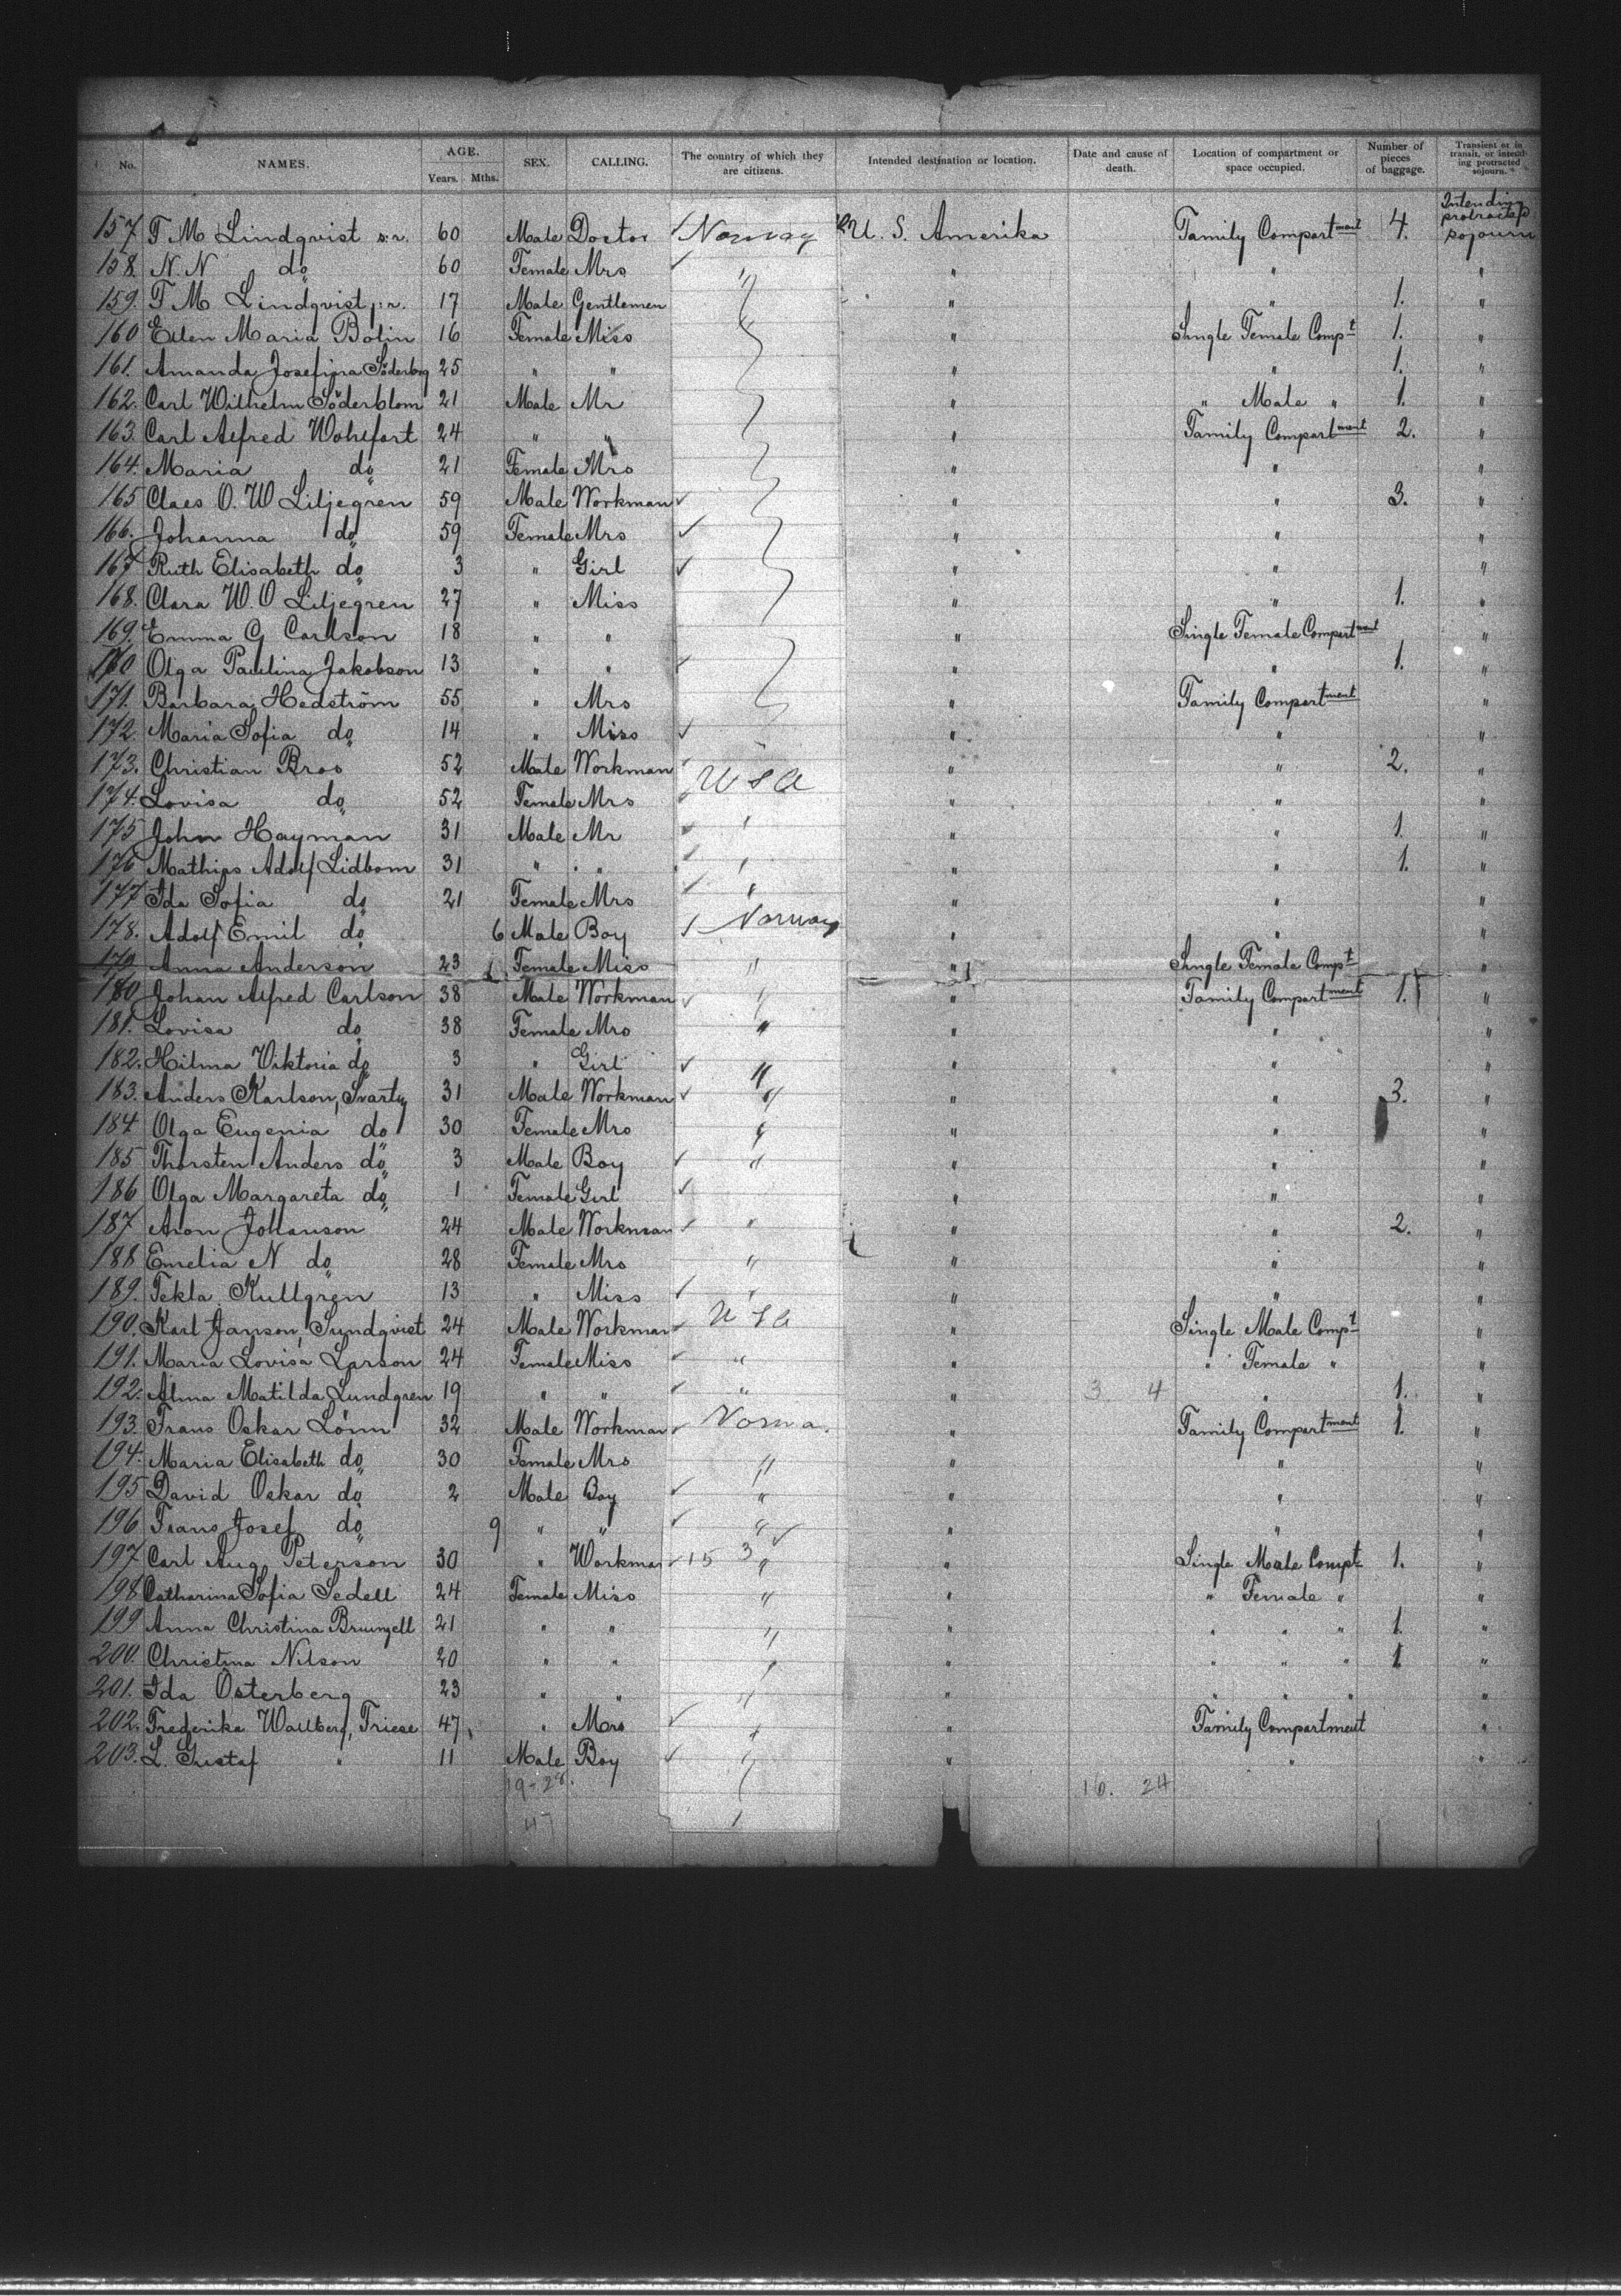 No. NAMES. AGE. Years. Mths. SEX. CALLING. The country of which they are citizens. Intended destination or location. Date and cause of death. Location of compartment or space occupied. Number of pieces of baggage. Transient or in transit, or intending protracted sojourn.
157. F M Lindqvist s:r. 60 Male Doctor Norway U. S. Amerika Family Compartment 4. Intending protracted sojourn
158. N. N do 60 Female Mrs " " " "
159. F M Lindqvist j:r. 17 Male Gentlemen " " 1. "
160 Ellen Maria Bolin 16 Female Miss " Single Female Compt 1. "
161. Amanda Josefina Söderberg 25 " " " " 1. "
162. Carl Wilhelm Söderblom 21 Male Mr " " Male " 1. "
163. Carl Alfred Wohlfart 24 " " " Family Compartment 2. "
164. Maria do 21 Female Mrs " " "
165 Claes O. W Liljegren 59 Male Workman " " 3. "
166. Johanna do 59 Female Mrs " " "
167 Ruth Elisabeth do 3 " Girl " " "
168. Clara W. O Liljegren 27 " Miss " " 1. "
169. Emma G Carlson 18 " " " Single Female Compartment "
170 Olga Paulina Jakobson 13 " " " " 1. "
171. Barbara Hedström 55 " Mrs " Family Compartment "
172. Maria Sofia do 14 " Miss " " "
173. Christian Bros 52 Male Workman U S A " " 2. "
174. Lovisa do 52 Female Mrs " " "
175 John Hayman 31 Male Mr " " " 1. "
176 Mathias Adolf Lidbom 31 " " " " " 1. "
177 Ida Sofia do 21 Female Mrs " " " "
178. Adolf Emil do 6 Male Boy Norway " " "
179 Anna Anderson 23 Female Miss " " Single Female Compt "
180 Johan Alfred Carlson 38 Male Workman " " Family Compartment 1. "
181. Lovisa do 38 Female Mrs " " " "
182. Hilma Viktoria do 3 " Girl " " " "
183. Anders Karlson, Svarty 31 Male Workman " " " 3. "
184 Olga Eugenia do 30 Female Mrs " " " "
185 Thorsten Anders do 3 Male Boy " " " "
186 Olga Margareta do 1 Female Girl " " "
187 Aron Johanson 24 Male Workman " " " 2. "
188 Emelia N do 28 Female Mrs " " " "
189. Tekla Kullgren 13 " Miss " " " "
190. Karl Janson, Sundqvist 24 Male Workman U S A " Single Male Compt "
191. Maria Lovisa Larson 24 Female Miss " " " Female " "
192. Alma Matilda Lundgren 19 " " " " 3 4 " 1. "
193. Frans Oskar Lönn 32 Male Workman Norwa. " Family Compartment 1. "
194. Maria Elisabeth do 30 Female Mrs " " " "
195 David Oskar do 2 Male Boy " " " "
196 Frans Josef do 9 " " " " " "
197 Carl Aug Peterson 30 " Workman 15 3 " " Single Male Compt 1. "
198 Catharina Sofia Sedell 24 Female Miss " " " Female " "
199 Anna Christina 21 " " " " " " " 1. "
200. Christina Nilson 20 " " " " " " " 1. "
201. Ida Österberg 23 " " " " " " " "
202. Frederika Wallberg, Friese 47 " Mrs " " Family Compartment "
203. L. Gustaf " 11 Male Boy " " " "
19-28. 16. 24
47